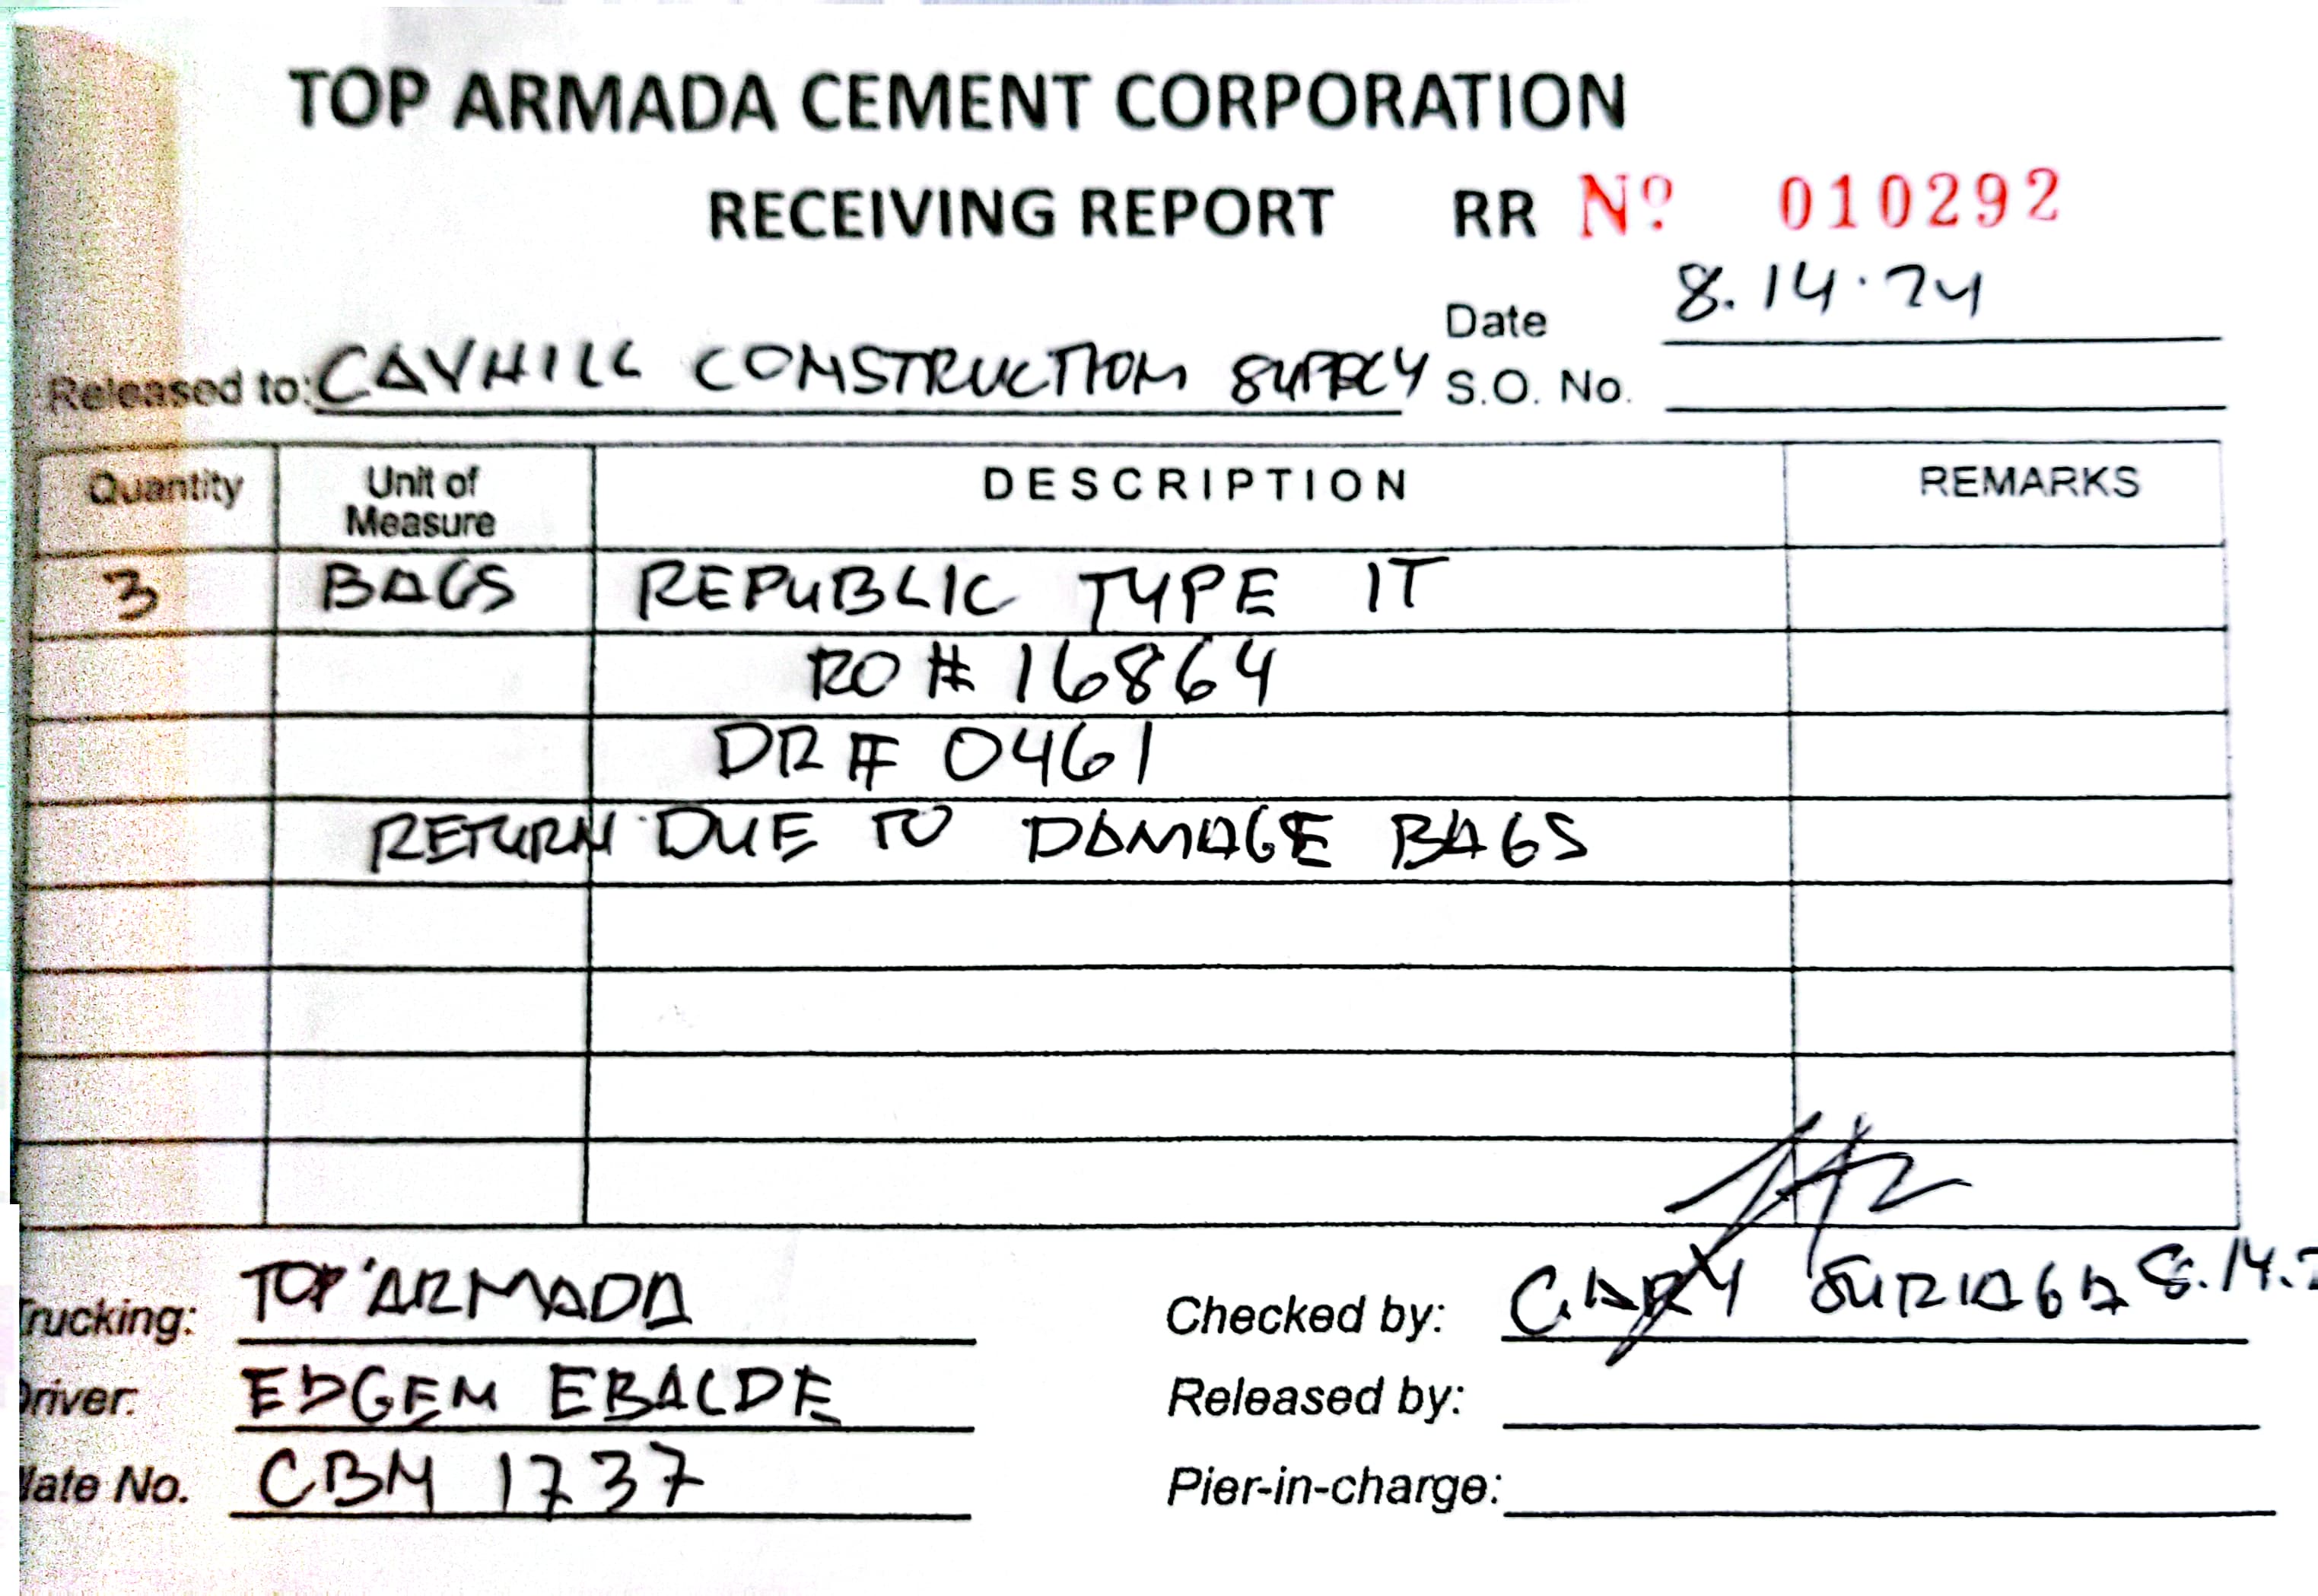 TOP ARMADA CEMENT CORPORATION
RECEIVING REPORT RR Nº 010292
Date 8.14.24
Released to: CAVHILL CONSTRUCTION SUPPLY S.O. No.
Quantity Unit of Measure DESCRIPTION REMARKS
3 BAGS REPUBLIC TYPE 1T
RO # 16864
DR # 0461
RETURN DUE TO DAMAGE BAGS
rucking: TOP ARMADA Checked by: GARY SURIAGA 8.14.2
river: EDGEM EBALDE Released by:
late No. CBM 1737 Pier-in-charge: